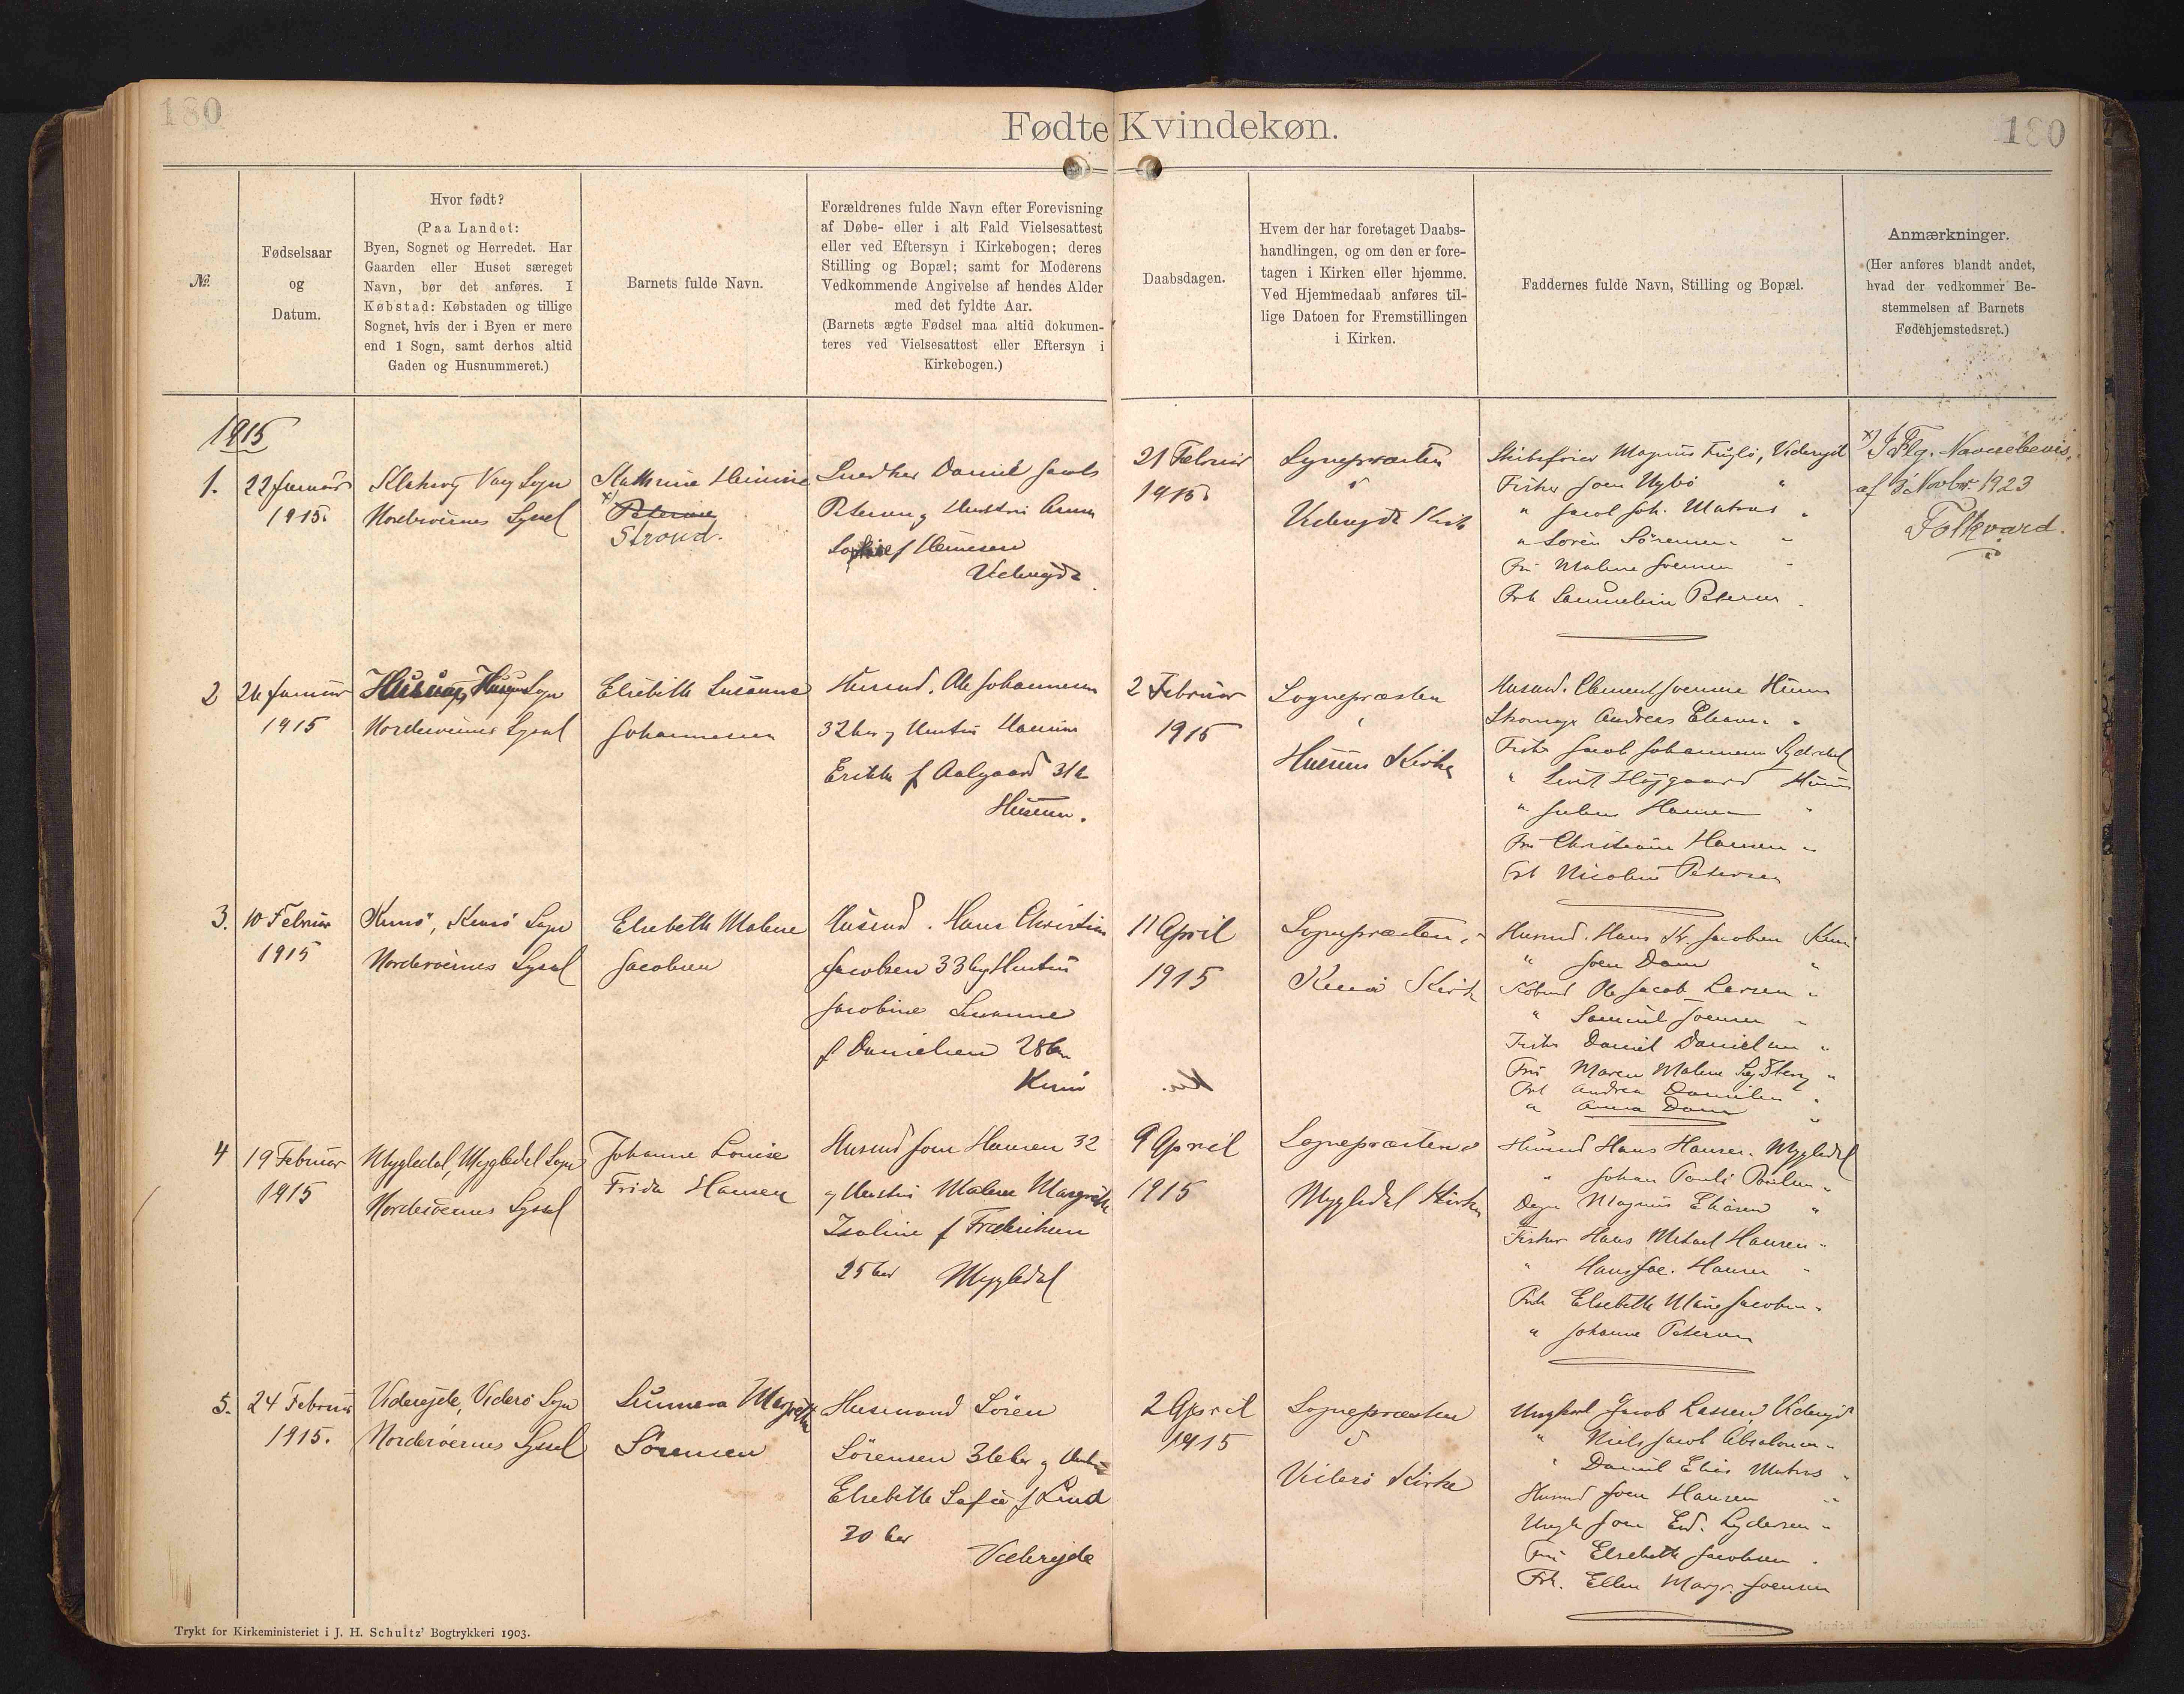 180
Fødte Kvindekøn.
180
№
Fødselsaar
og
Datum.
Hvor født?
(Paa Landet:
Byen, Sognet og Herredet. Har
Gaarden eller Huset særeget
Navn, bør det anføres. I
Købstad: Købstaden og tillige
Sognet, hvis der i Byen er mere
end 1 Sogn, samt derhos altid
Gaden og Husnummeret.)
Barnets fulde Navn.
Forældrenes fulde Navn efter Forevisning
af Døbe- eller i alt Fald Vielsesattest
eller ved Eftersyn i Kirkebogen; deres
Stilling og Bopæl; samt for Moderens
Vedkommende Angivelse af hendes Alder
med det fyldte Aar.
(Barnets ægte Fødsel maa altid dokumen-
teres ved Vielsesattest eller Eftersyn i
Kirkebogen.)
Daabsdagen.
Hvem der har foretaget Daabs-
handlingen, og om den er fore-
tagen i Kirken eller hjemme.
Ved Hjemmedaab anføres til-
lige Datoen for Fremstillingen
i Kirken.
Faddernes fulde Navn, Stilling og Bopæl.
Anmærkninger.
(Her anføres blandt andet,
hvad der vedkommer Be-
stemmelsen af Barnets
Fødehjemstedsret.)
1915
1.
22 Januar
1915.
Sogn
Norderøernes Syssel
Kathrine
x)
Strond.
Snedker Daniel
Petersen og Hustru
f Hennesen
21 Februar
1915
Sognepræsten
Kirke
Skibsfører Magnus Fuglø,
Fisker Joen Nybø "
" Jacob Joh. Matras "
" Sören Sörensen "
Malene Joensen "
Petersen
x) I Flg. Navnebevis
af Novbr. 1923
Folkvard.
2
26 Januar
1915
Sogn
Norderøernes Syssel
Elsebeth Susanne
Johannesen
Husmd. Ole Johannesen
32 Aar og Hustru
f Aalgaard 31
Husum.
2 Februar
1915
Sognepræsten
Husum Kirke
Husmd. Clement Joensen Husum
Andreas Eliasen "
Fisker Jacob Johannesen
" Højgaard Husum
" Hansen "
Fru Christiane Hansen "
Frk Nicoline Petersen
3.
10 Februar
1915
Kunø, Kunø Sogn
Norderøernes Syssel
Elsebeth Malene
Jacobsen
Husmd. Hans Christian
Jacobsen 33 og Hustru
Jacobine Susanne
f Danielsen 28
Kunø
11 April
1915
Sognepræsten
Kunø Kirke
Husmd. Hans Jacobsen
" Joen Dam "
Ole Jacob Larsen "
" Samuel Joensen "
Fisker Daniel Danielsen "
Fru Maren Malene "
Frk Andrea Danielsen "
" Anna Dam "
4
19 Februar
1915
Mygledal, Mygledal Sogn
Norderøernes Syssel
Johanne Louise
Frida Hansen
Husmd Joen Hansen 32
og Hustru Malene Margrethe
f Frederiksen
25 Aar Mygledal
9 April
1915
Sognepræsten
Mygledal Kirke
Husmd Hans Hansen. Mygledal
" Johan Pauli Poulsen "
Degn Magnus Eliasen "
Fisker Hans Mikael Hansen "
" Hans Jac. Hansen "
Frk Elsebeth Marie Jacobsen "
" Johanne Petersen
5.
24 Februar
1915.
Viderejde, Viderø Sogn
Norderøernes Syssel
Sunneva Margrethe
Sörensen
Husmand Sören
Sörensen 36 Aar og Hustru
Elsebeth Sofie f Lund
30 Aar
Viderejde
2 April
1915
Sognepræsten
Viderø Kirke
Ungkarl Jacob Lassen, Viderejde
" Niels Jacob Absalonsen "
" Daniel Elias Matras "
Husmd Joen Hansen "
Joen Lydersen "
Fru Elsebeth Jacobsen
Frk. Ellen Margr. Joensen
Trykt for Kirkeministeriet i J. H. Schultz' Bogtrykkeri 1903.